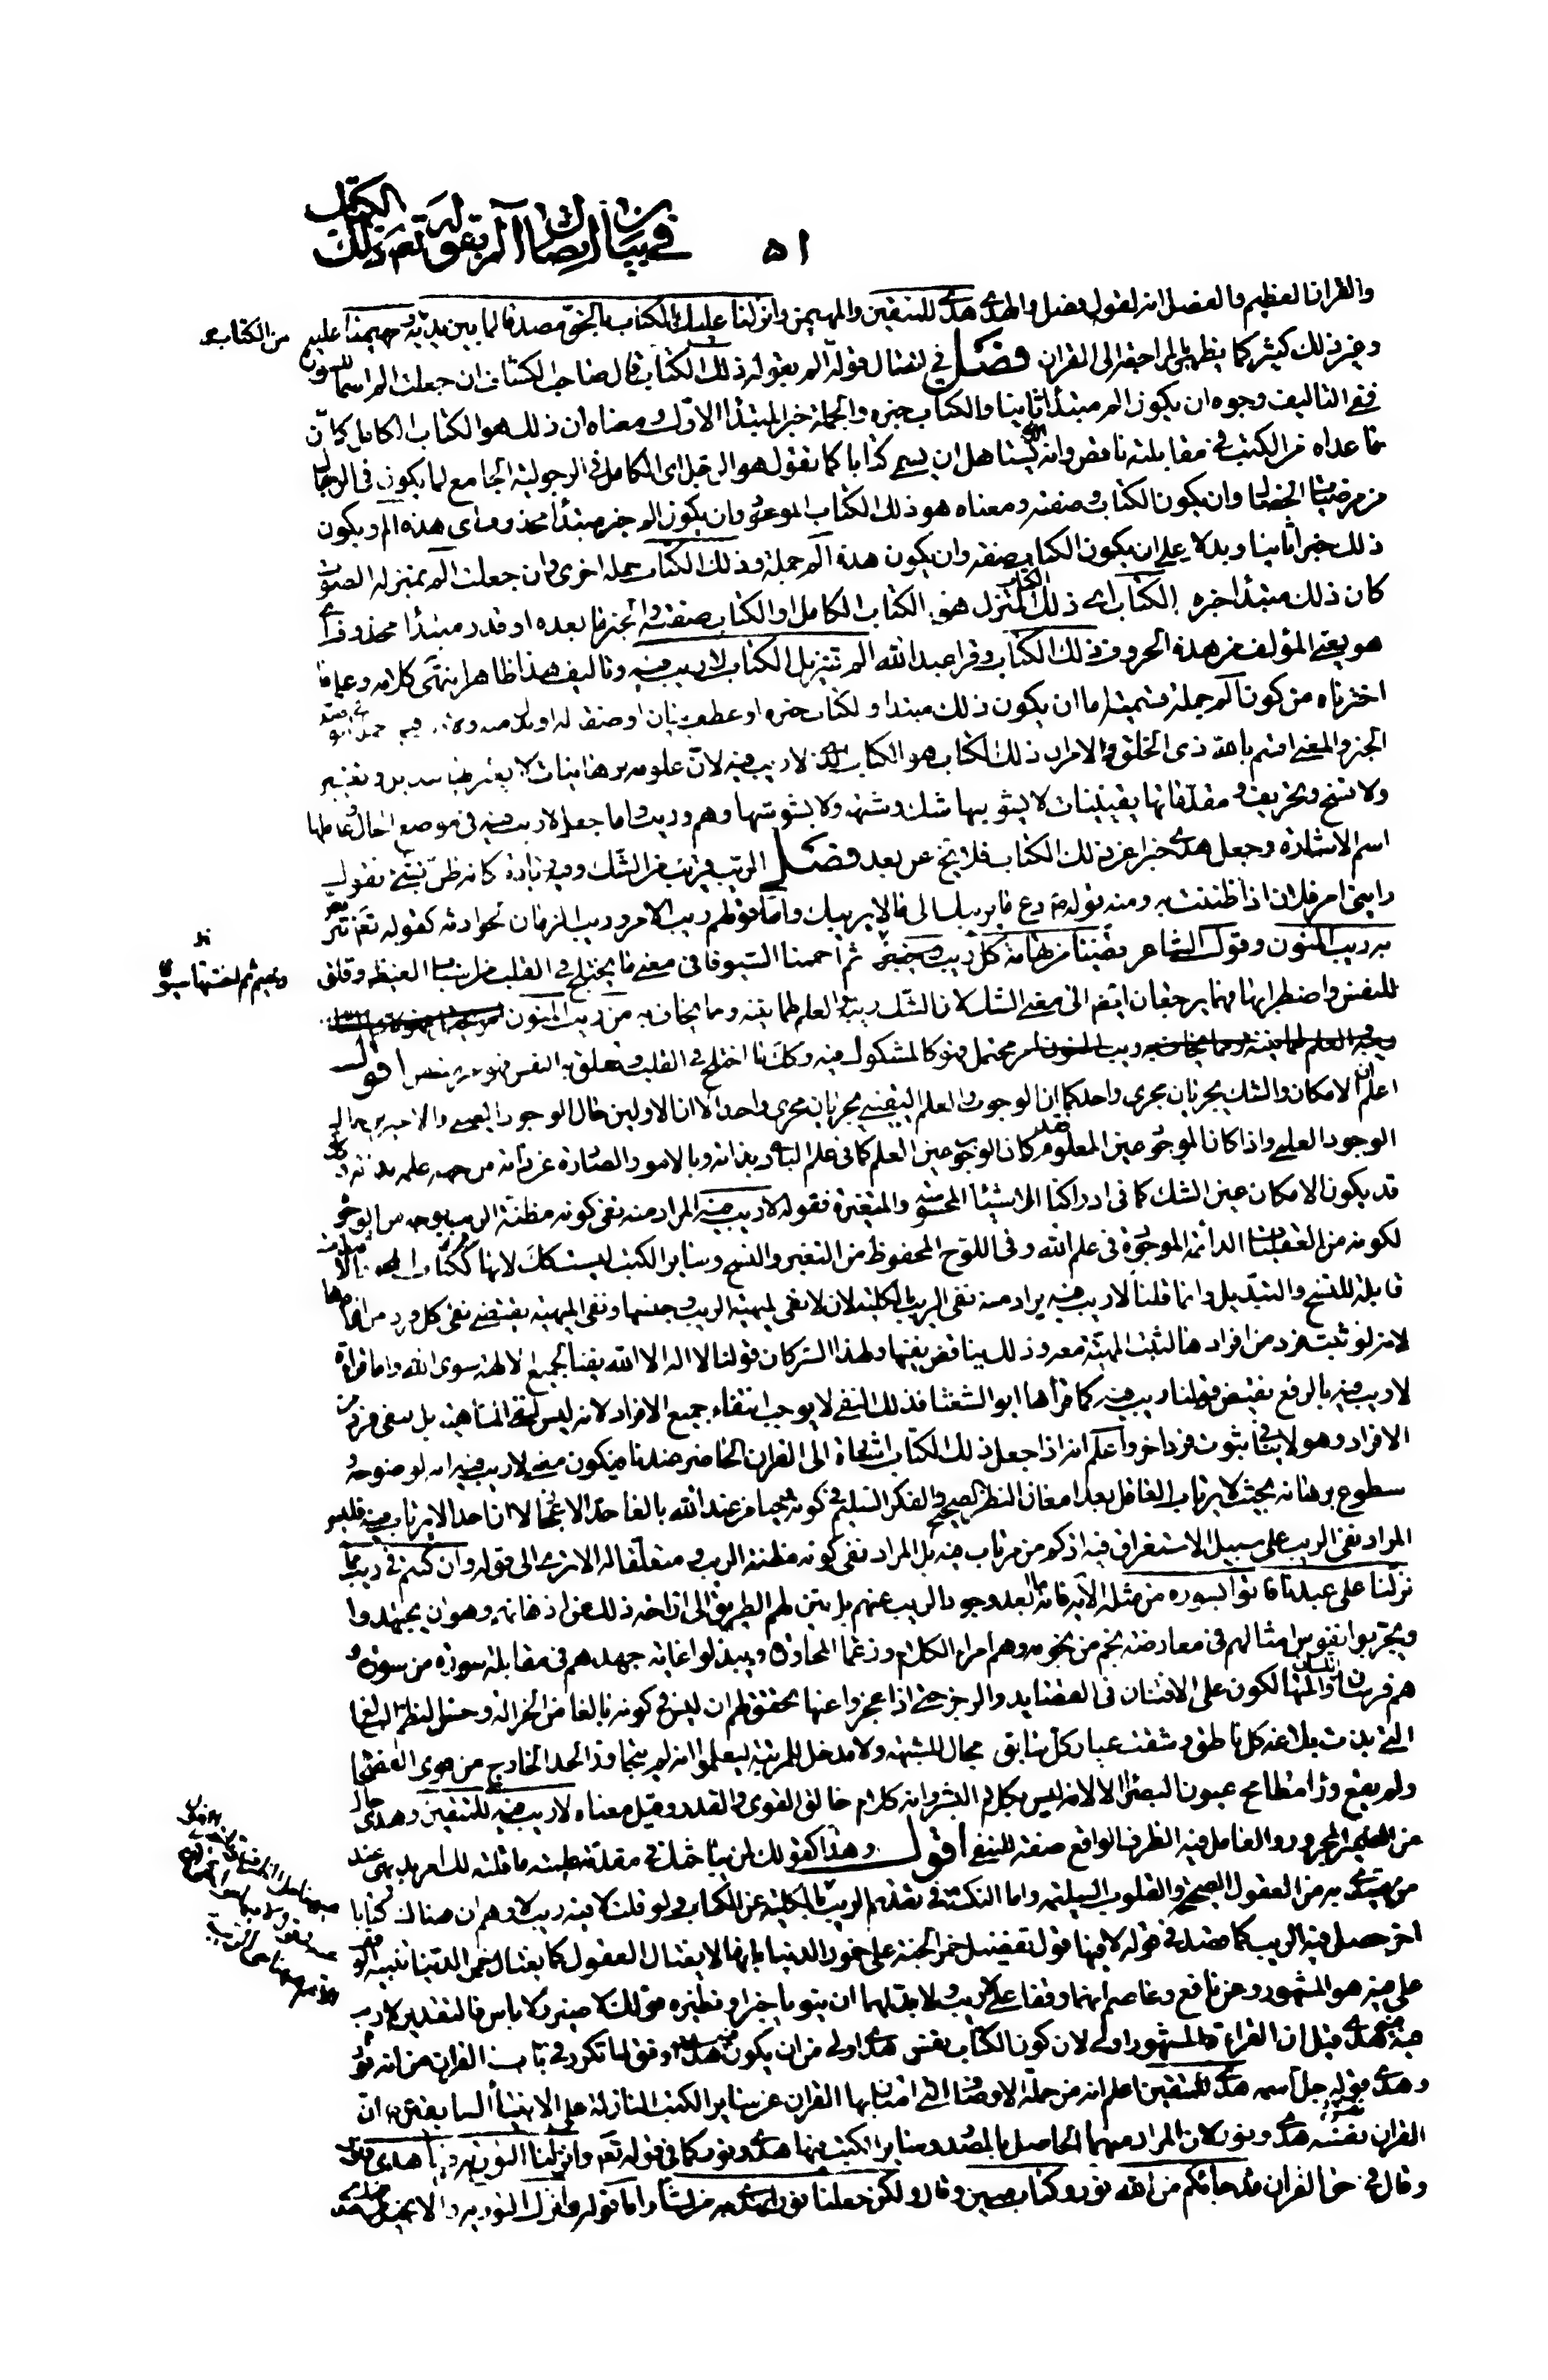 ٥١
في بيان اتصال الم بقوله تع ذلك الكتاب
والقران العظيم والفصل انه لقول فصل والهدى هدى للمتقين والمهيمن وانزلنا عليك الكتاب بالحق مصدقا لما بين يديه ومهيمنا عليه من الكتاب
وغير ذلك كثير كما يظهر بالمراجعة الى القران فصل في اتصال قوله الم بقوله ذلك الكتاب قال صاحب الكشاف ان جعلت الم اسما للسورة
ففي التاليف وجوه ان يكون الم مبتدأ ثانيا والكتاب خبره والجملة خبر المبتدأ الاول ومعناه ان ذلك هو الكتاب الكامل كان
ما عداه من الكتب في مقابلته ناقص وانه الذي يستاهل ان يسمى كتابا كما تقول هو الرجل اى الكامل في الرجولية الجامع لما يكون في الرجال
من مرضيات الخصال وان يكون الكتاب صفته ومعناه هو ذلك الكتاب الموعود وان يكون الم خبر مبتدأ محذوف اى هذه الم ويكون
ذلك خبرا ثانيا وبدلا على ان يكون الكتاب صفته وان يكون هذه الم جملة وذلك الكتاب جملة اخرى وان جعلت الم بمنزلة الصوت
كان ذلك مبتدأ خبره الكتاب اى ذلك الكتاب المنزل هو الكتاب الكامل او الكتاب صفته والخبر ما بعده او قدر مبتدأ محذوف اى
هو يعني المؤلف من هذه الحروف ذلك الكتاب وقرا عبد الله الم تنزيل الكتاب لا ريب فيه وتاليف هذا ظاهر انتهى كلامه وعلى ما
اخترناه من كون الم جملة قسمية اما ان يكون ذلك مبتدا والكتاب خبره او عطف بيان او صفة له او بدلا منه
الخبر والمعنى اقسم بالله ذى الخلق والامر ان ذلك الكتاب هو الكتاب الذي لا ريب فيه لان علومه برهانيات لا يعتريها تبديل وتغيير
ولا نسخ وتحريف ومقدماتها يقينيات لا يشوبها شك وشبهة ولا يشوشها وهم وريب واما جعل لا ريب فيه في موضع الحال وعاملها
اسم الاشارة وجعل هدى خبرا عن ذلك الكتاب فلا يخ عن بعد فصل الريب قريب من الشك وفيه زيادة كانه ظن تقول
رابني امر فلان اذا ظننت به ومنه قوله ص دع ما يريبك الى ما لا يريبك واما قولهم ريب الامر وريب الزمان لحوادثه كقوله تع نتربص
به ريب المنون وقول الشاعر قضينا من تهامة كل ريب وخيبر ثم اجممنا السيوفا في معنى ما يختلج في القلب من اسباب الغيظ وقلق
للنفس واضطرابها فهما يرجعان ايضا الى معنى الشك لان الشك ريبة والعلم طمانينة وما يخاف به من ريب المنون
محتمل فهو كالمشكوك فيه وكك ما اختلج في القلب وتعلق به النفس فهو اقول
اعلم ان الامكان والشك يجريان مجرى واحدا كما ان الوجوب والعلم اليقيني يجريان مجرى واحدا الا ان الاولين حال الوجود العيني والاخيرين حال
الوجود العلمي واذا كان الموجود عين المعلوم كان الوجوب عين العلم كما في علم الباري بذاته وبالامور الصادرة عن ذاته من جهة علمه بذاته وكك
قد يكون الامكان عين الشك كما في ادراكنا الاشياء المحسوسة والمتغيرة فقوله لا ريب فيه المراد منه نفى كونه مظنة الريب بوجه من الوجوه
لكونه من العقليات الدائمة الموجودة في علم الله وفي اللوح المحفوظ من التغير والنسخ وساير الكتب ليست كك لانها
قابلة للنسخ والتبديل وانما قلنا لا ريب فيه يراد منه نفى الريب بالكلية لان لا نفى لمهية الريب وجنسها ونفى المهية يقتضى نفى كل فرد من افرادها
لانه لو ثبت فرد من افرادها لثبت المهية معه وذلك يناقض نفيها ولهذا السر كان قولنا لا اله الا الله نفيا لجميع الالهة سوى الله واما قراءة
لا ريب فيه بالرفع نقيض قولنا ريب فيه كما قرأها ابو الشعثا فذلك النفى لا يوجب انتفاء جميع الافراد لانه ليس لنفى الماهية بل نفى فرد من
الافراد وهو لا ينافي ثبوت فرد اخر واعلم انه اذا جعل ذلك الكتاب اشارة الى القران الحاضر عندنا فيكون معنى لا ريب فيه انه لوضوحه و
سطوع برهانه بحيث لا يرتاب العاقل بعد امعان النظر الصحيح والفكر السليم في كونه وحيا من عند الله بالغا حد الاعجاز لا ان احدا لا يرتاب فيه فليس
المراد نفى الريب على سبيل الاستغراق فيه اذ كم من مرتاب فيه بل المراد نفى كونه مظنة الريب ومتعلقا له الا ترى الى قوله وان كنتم في ريب مما
نزلنا على عبدنا فاتوا بسورة من مثله الاية فانه ما ابعد وجود الريب عنهم بل بين لهم الطريق الى ازاحة ذلك عن اذهانهم وهو ان يجتهدوا
ويجربوا نفوس امثالهم في معارضة نجم من نجومه وهم امراء الكلام وزعماء المحاورة ويبذلوا غاية جهدهم في مقابلة سورة من سوره و
هم فرسان والمتهالكون على الافتنان في القصايد والرجز حتى اذا عجزوا عنها تحقق لهم ان ليس في كونه بالغا من الجزالة وحسن النظم المبالغ
التي بذت بلاغة كل ناطق وشقت غبار كل سابق مجال للشبهة ولا مدخل للمرية ليعلموا انه لم يتجاوز الحد الخارج من قوى الفصحا
ولم يقع وراء مطامح عيون البصراء الا لانه ليس بكلام البشر وانه كلام خالق القوى والقدر وقيل معناه لا ريب فيه للمتقين وهدى حال
من الضمير المجرور والعامل فيه الظرف الواقع صفة للنفى اقول وهذا كقولك لمن يناقشك في مقدمة ما قلته لك امر بديهى عند
من يهتدى به من العقول الصحيحة والقلوب السليمة واما النكتة في تقديم الريب بالكلية عن الكتاب ولو قلت لا فيه ريب لاوهم ان هناك كتابا
اخر حصل فيه الريب كما قصد في قوله لا فيها غول تفضيل خمر الجنة على خمور الدنيا بانها لا يغتال العقول كما يغتال خمر الدنيا تنبيه الوقف
على فيه هو المشهور وعن نافع وعاصم انهما وقفا على لا ريب ولا بد لهما ان ينويا خبرا ونظيره قولك لا ضير ولا باس فالتقدير لا ريب
فيه فيه هدى قيل ان القراءة المشهورة اولى لان كون الكتاب نفس هدى اولى من ان يكون فيه هدى وفق لما تكرر في باب القران من انه نور
وهدى قوله جل اسمه هدى للمتقين اعلم انه من جملة الاوصاف التي امتاز بها القران عن ساير الكتب النازلة على الانبياء السابقين ان
القران نفسه هدى ونور لان المراد منهما الحاصل بالمصدر وساير الكتب فيها هدى ونور كما في قوله تعم وانزلنا التورية فيها هدى ونور
وقال في حق القران قد جائكم من الله نور وكتاب مبين وقال ولكن جعلناه نورا نهدى به من نشاء واما قوله وانزل التورية والانجيل هدى